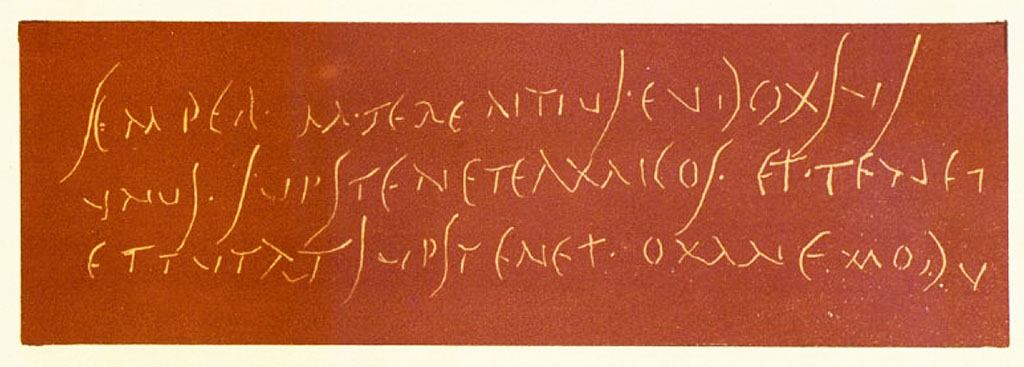 SEMPER · M · TERENTIUS · EUDOXSUS
UNUS · SUPSTENET AMICOS · ET · TENET
ET TUTAT SUPSTENET · OMNE MODU